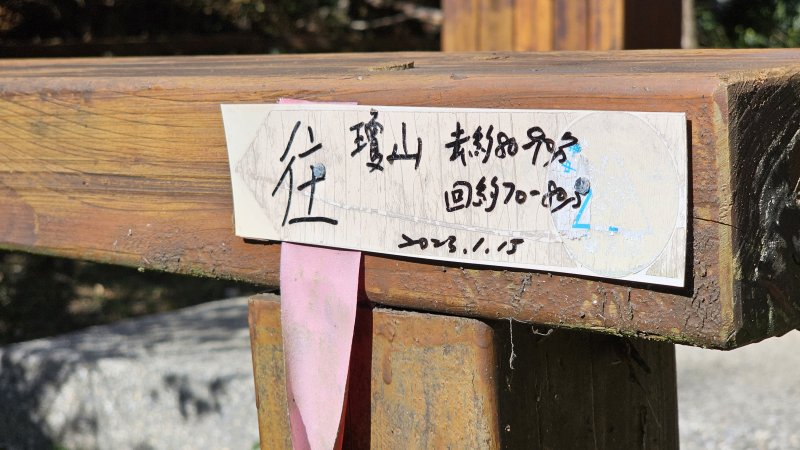 往 瓊山 去約80-90分
回約70-80分
2023.1.15